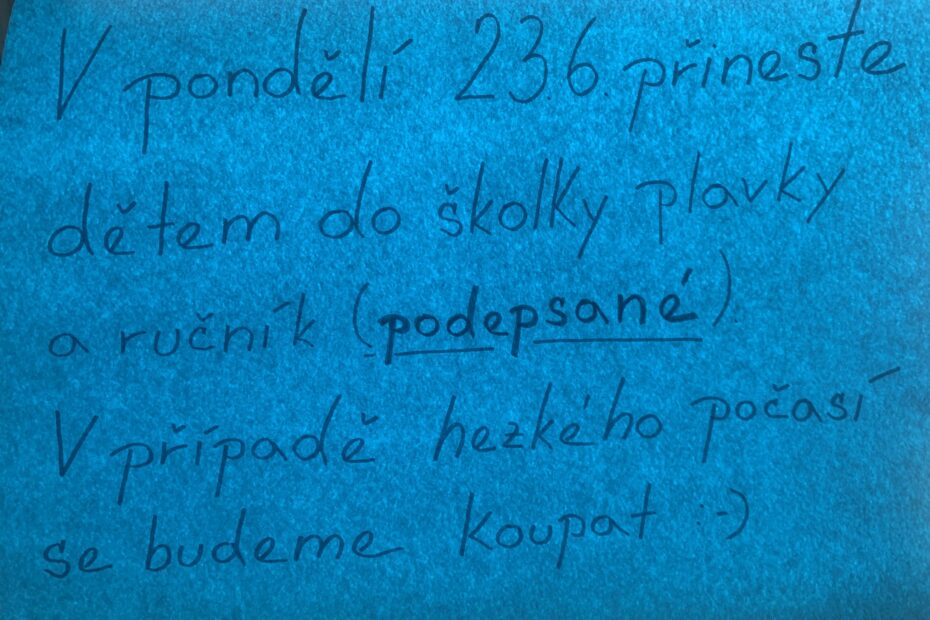 V pondělí 23.6. přineste
dětem do školky plavky
a ručník (podepsané).
V případě hezkého počasí
se budeme koupat :-)